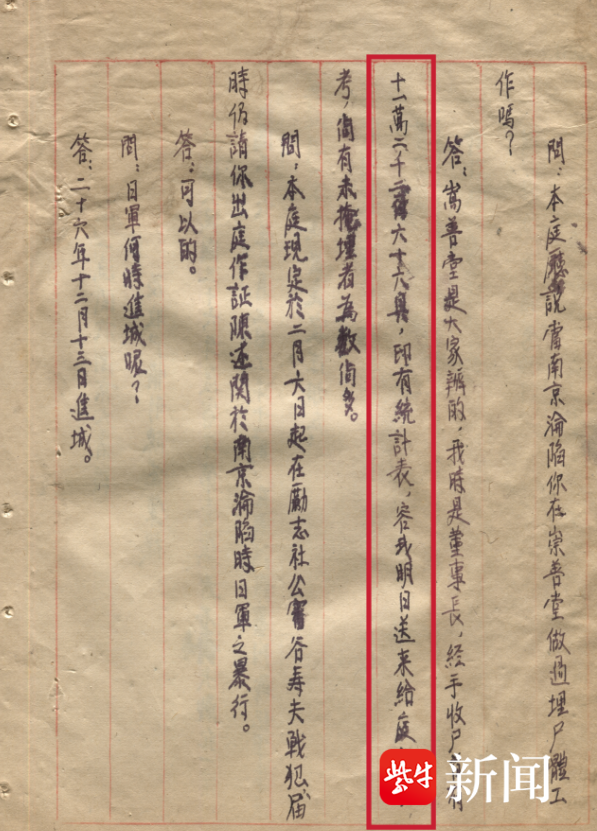 問：本庭廳說當南京淪陷你在崇善堂做過埋尸體工
作嗎？
答：嵩善堂是大家辦的，我時是董事長，經手收尸
十一萬二千二百六十六具，印有統計表，容我明日送来給庭
考，尚有未掩埋者為數尚多。
問：本庭現定於二月六日起在勵志社公審谷寿夫戰犯届
時仍請你出庭作証陳述關於南京淪陷時日軍之暴行。
答：可以的。
問：日軍何時進城呢？
答：二十六年十二月十三日進城。
紫牛新闻